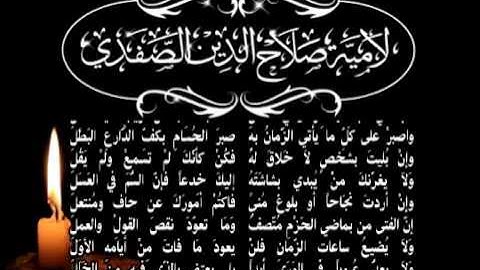 لاميَّة صلاح الدين الصَّفَدي
واصبرْ على كلِّ ما يأتي الزَّمانُ بهِ صبرَ الحُسَامِ بِكَفِّ الدَّارعِ البَطَلِ
وإنْ بُليتَ بشخصٍ لا خلاقَ لهُ فكُنْ كأنَّكَ لم تسمعْ ولمْ يَقُلِ
ولا يغرنكَ منْ يبدي بشاشتَهُ إليكَ خدعاً فإنَّ السُّم في العَسَلِ
وإنْ أردتَ نجاحاً أو بلوغَ مُنى فاكتمْ أمورَكَ عن حافٍ ومُنتعلِ
إنَّ الفتى من بماضي الحزمِ مُتَّصفٌ وما تعودَ نقصَ القولِ والعملِ
ولا يُضيعُ ساعاتِ الزَّمانِ فلنْ يعودَ ما فاتَ منْ أيامهِ الأوَلِ
ولا يعدُّ عيوباً في الورى أبداً بل يعتني بالذي فيه منَ الخَللِ